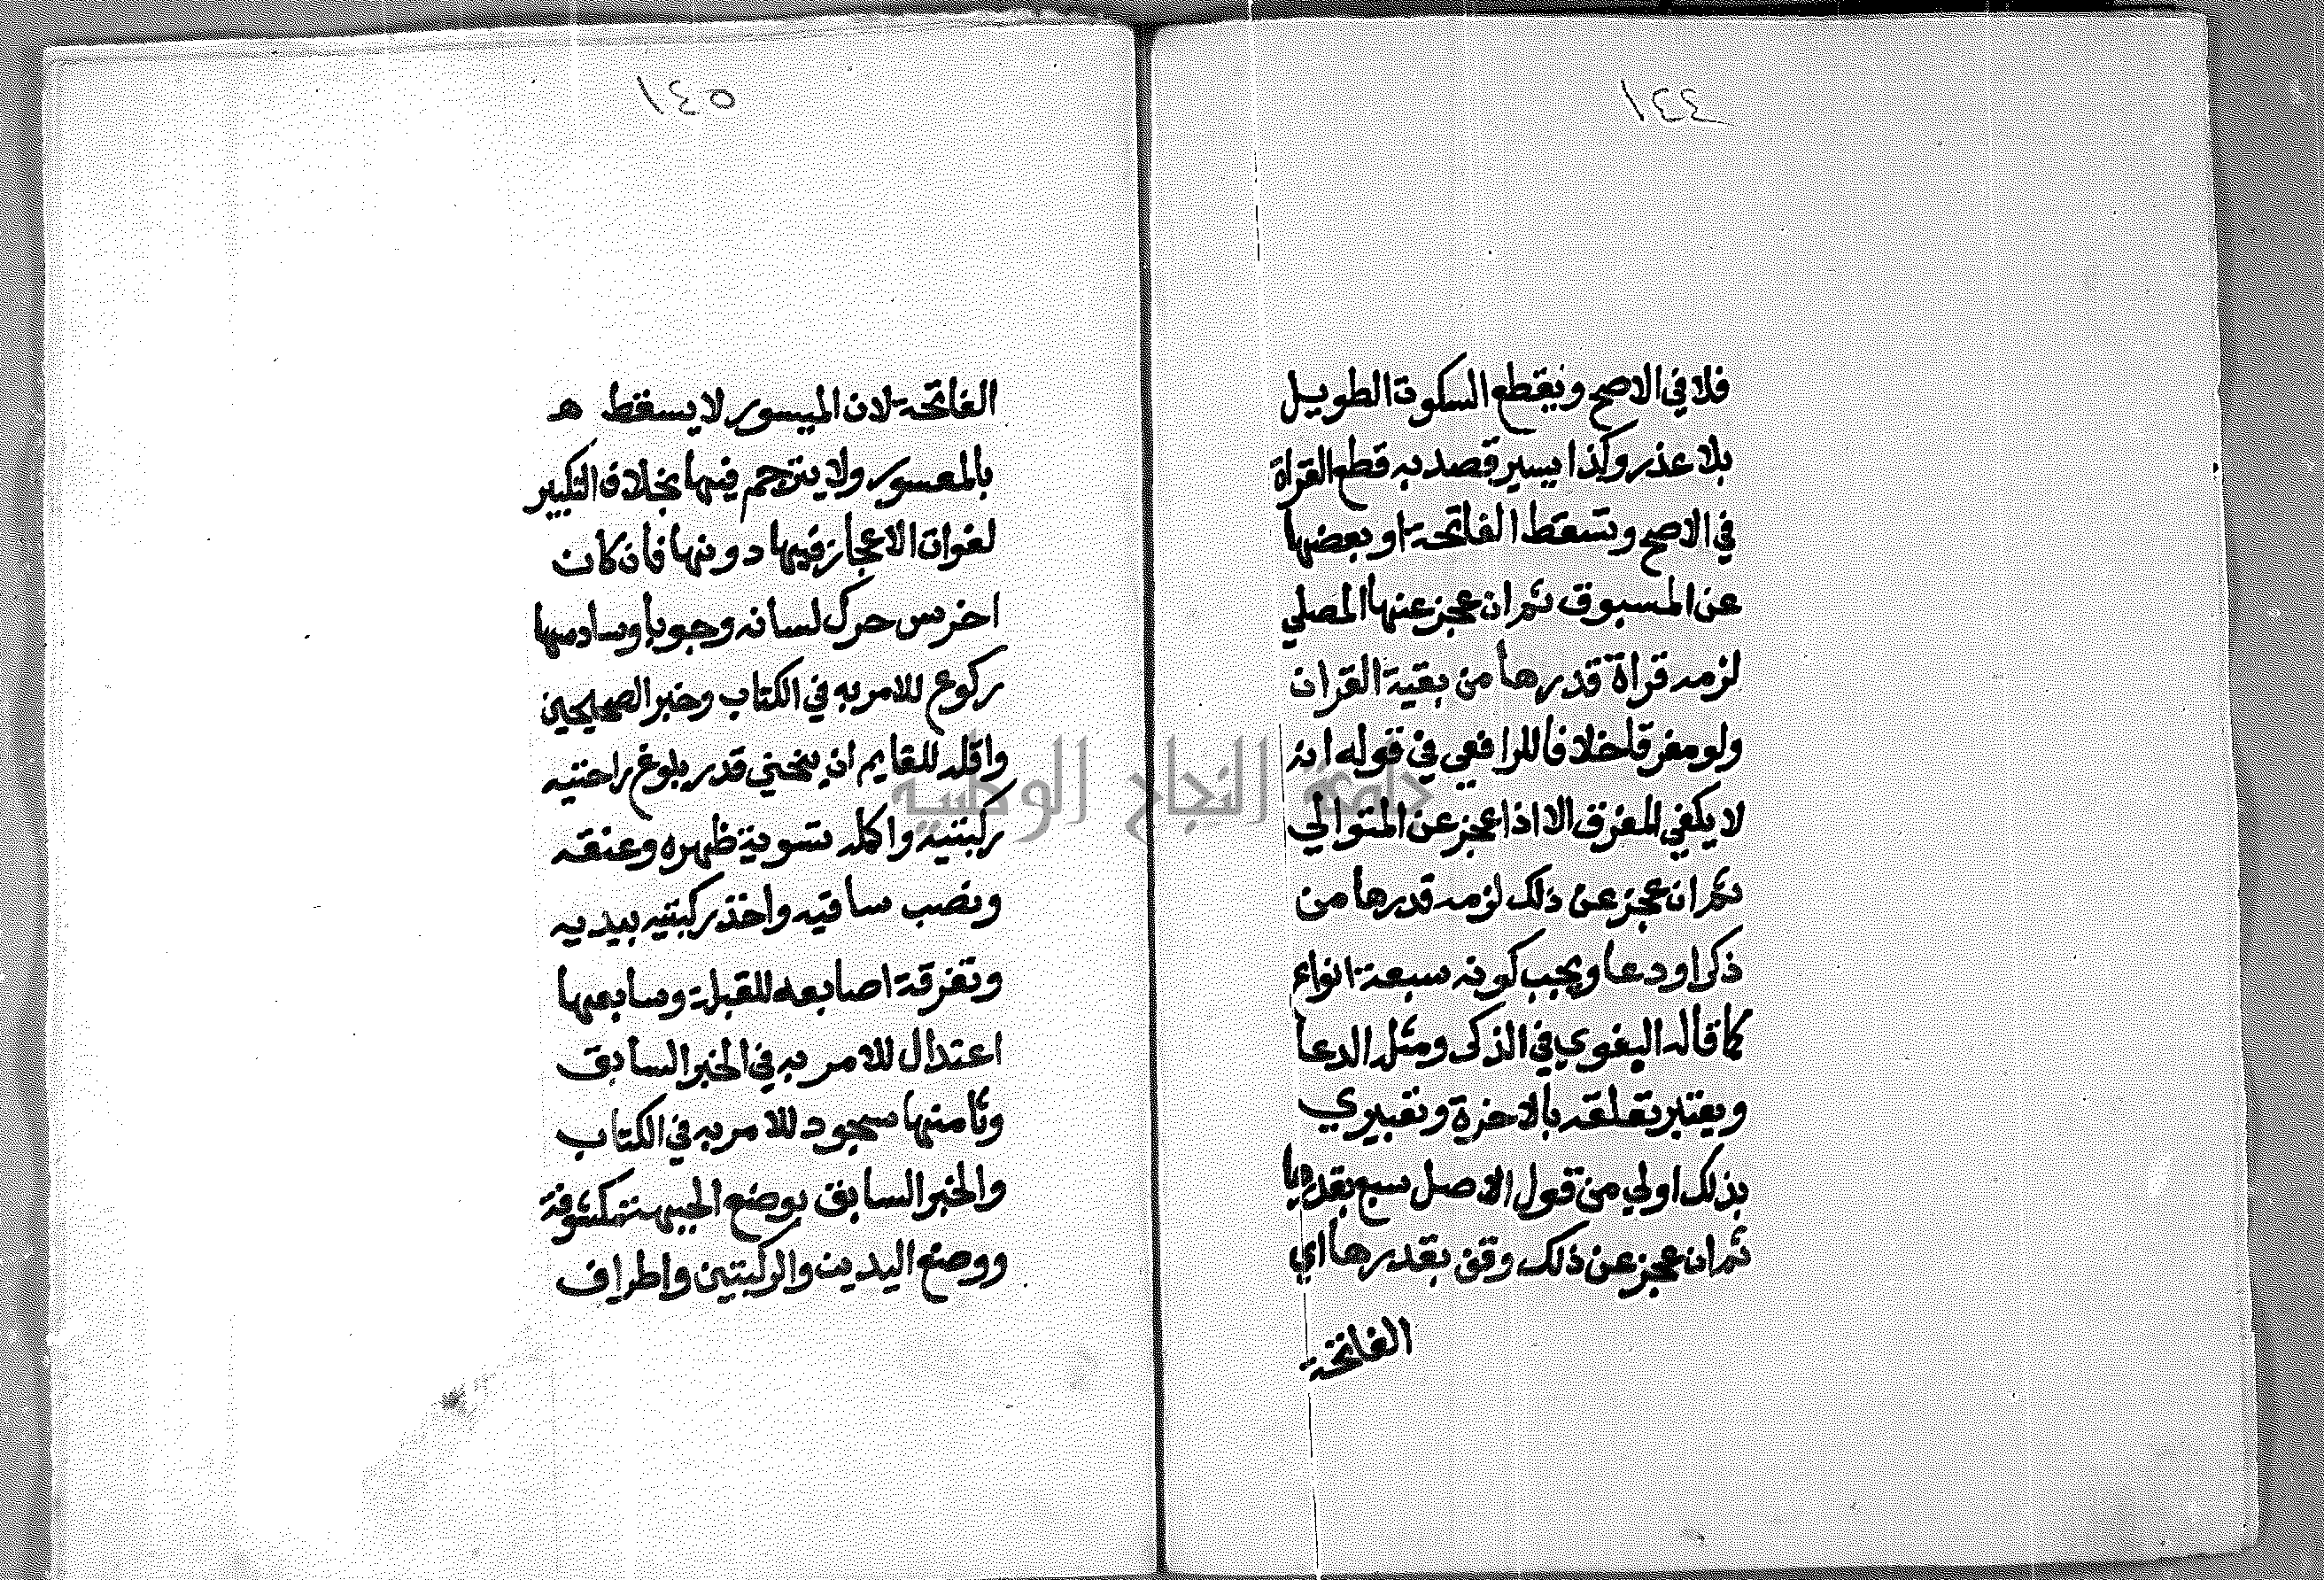 ١٤٤
فلا في الاصح ويقطع السكوت الطويل
بلا عذر وكذا يسير قصد به قطع القراة
في الاصح وتسقط الفاتحة او بعضها
عن المسبوق ثم ان عجز عنها المصلي
لزمه قراة قدرها من بقية القران
ولو مفرقا خلافا للرافعي في قوله انه
لا يكفي المفرق الا اذا عجز عن المتوالي
ثم ان عجز عن ذلك لزمه قدرها من
ذكر او دعا ويجب كونه سبعة انواع
كما قاله البغوي في الذكر ومثله الدعا
ويعتبر تعلقه بالاخرة وتعبيري
بذلك اولي من قول الاصل سبع بقدرها
ثم ان عجز عن ذلك وقف بقدرها اي
الفاتحة
١٤٥
الفاتحة لان الميسور لا يسقط هـ
بالمعسور ولا يترجم فيها بخلاف التكبير
لفوات الاعجاز فيها دونها فان كان
اخرس حرك لسانه وجوبا وسادسها
ركوع للامر به في الكتاب وخبر الصحيحين
واقله للقايم ان ينحني قدر بلوغ راحتيه
ركبتيه واكمله تسوية ظهره وعنقه
ونصب ساقيه واخذ ركبتيه بيديه
وتفرقة اصابعه للقبلة وسابعها
اعتدال للامر به في الخبر السابق
وثامنها سجود للامر به في الكتاب
والخبر السابق بوضع الجبهة مكشوفة
ووضع اليدين والركبتين واطراف
جامعة النجاح الوطنية